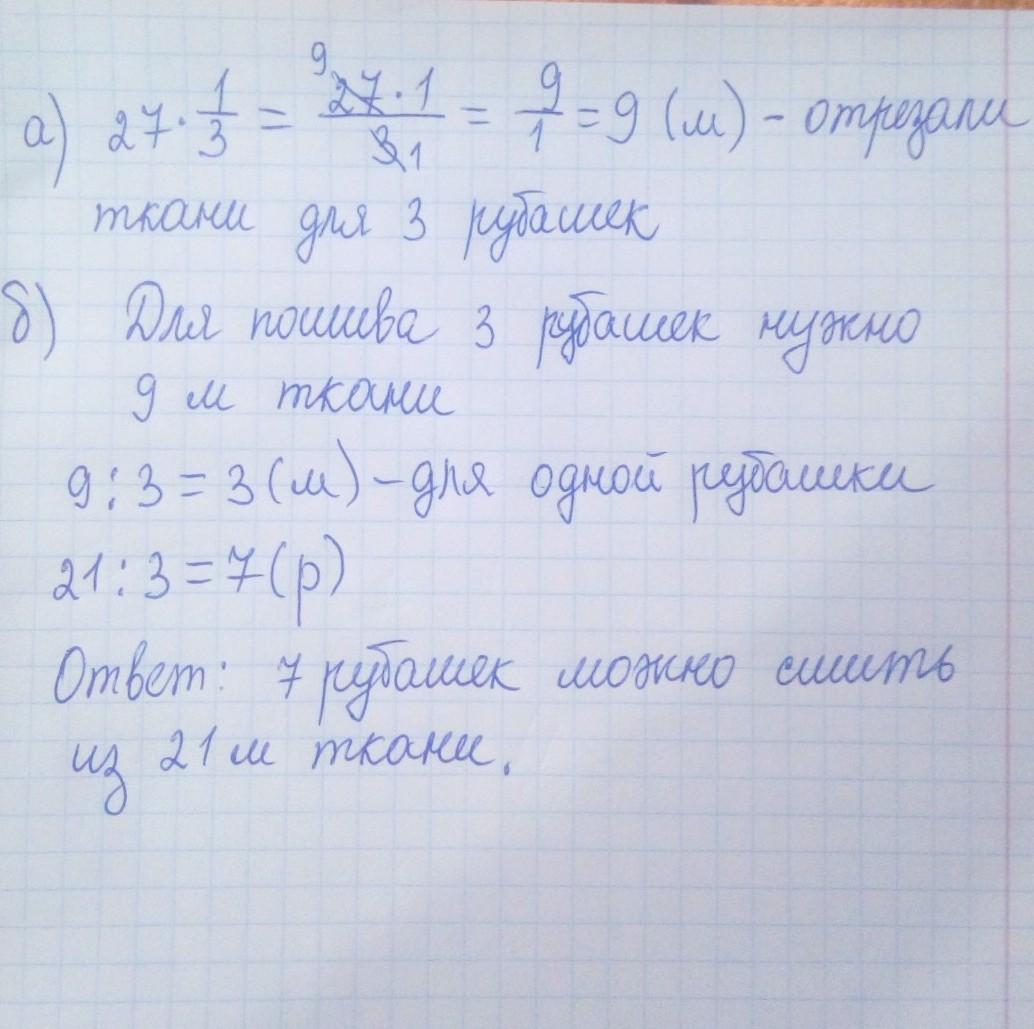 а) 27 · 1/3 = 27 · 1 / 3 = 9/1 = 9 (м) - отрезали
ткани для 3 рубашек
б) Для пошива 3 рубашек нужно
9 м ткани
9 : 3 = 3 (м) - для одной рубашки
21 : 3 = 7 (р)
Ответ: 7 рубашек можно сшить
из 21 м ткани.